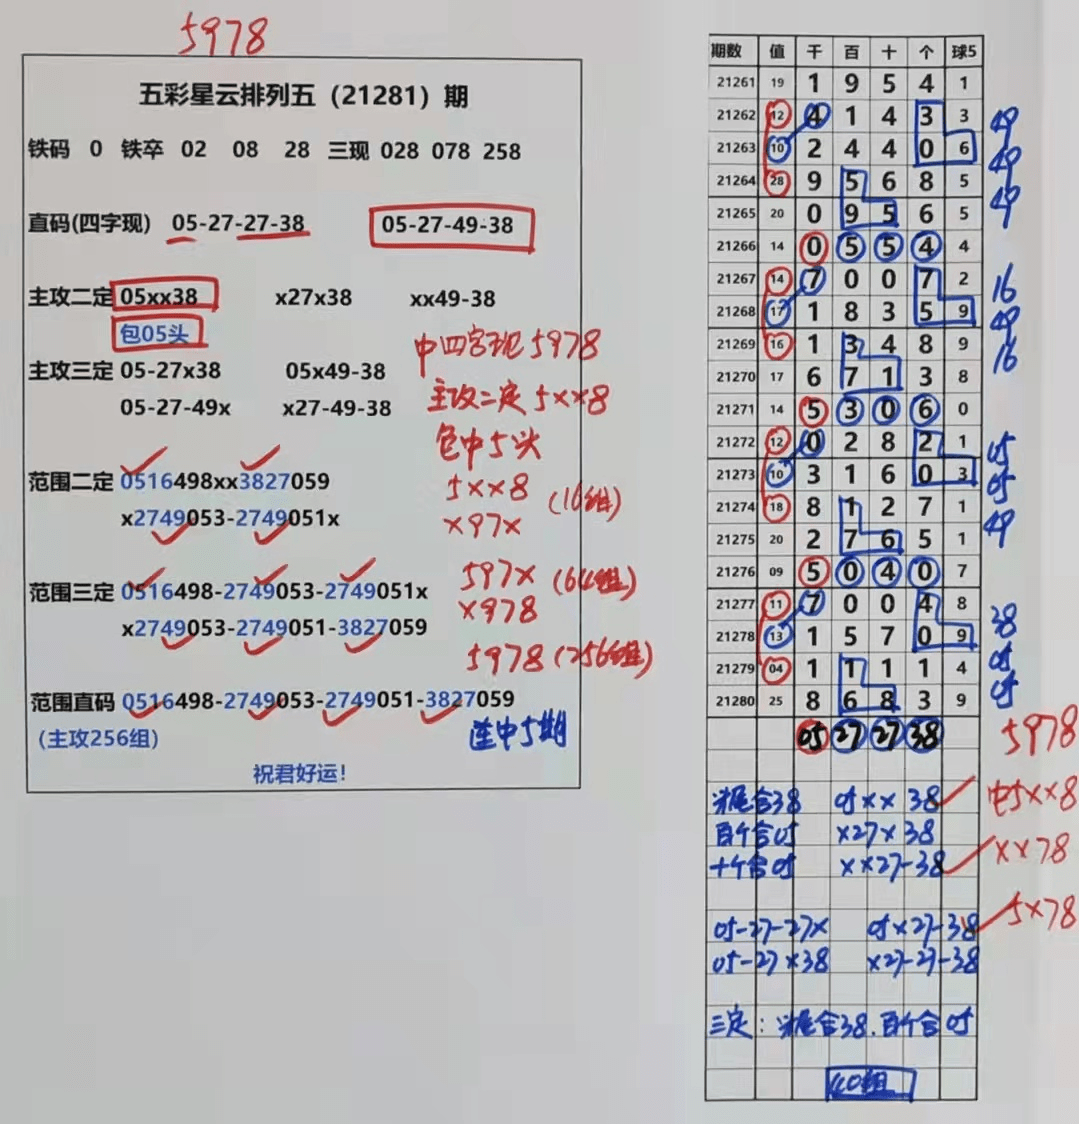 5978
五彩星云排列五（21281）期
铁码 0 铁卒 02 08 28 三现 028 078 258
直码(四字现) 05-27-27-38 05-27-49-38
主攻二定 05xx38 x27x38 xx49-38
包05头
主攻三定 05-27x38 05x49-38
05-27-49x x27-49-38
中四字现5978
主攻二定5xx8
包中5头
范围二定 0516498xx3827059
x2749053-2749051x
5xx8 (16组)
x97x
范围三定 0516498-2749053-2749051x
x2749053-2749051-3827059
597x (64组)
x978
5978 (256组)
范围直码 0516498-2749053-2749051-3827059
(主攻256组)
连中5期
祝君好运!
期数 值 千 百 十 个 球5
21261 19 1 9 5 4 1
21262 12 4 1 4 3 3 49
21263 10 2 4 4 0 6 49
21264 28 9 5 6 8 5 49
21265 20 0 9 5 6 5
21266 14 0 5 5 4 4
21267 14 7 0 0 7 2 16
21268 17 1 8 3 5 9 49
21269 16 1 3 4 8 9 16
21270 17 6 7 1 3 8
21271 14 5 3 0 6 0
21272 12 0 2 8 2 1 05
21273 10 3 1 6 0 3 05
21274 18 8 1 2 7 1 49
21275 20 2 7 6 5 1
21276 09 5 0 4 0 7
21277 11 7 0 0 4 8 38
21278 13 1 5 7 0 9 05
21279 04 1 1 1 1 4 05
21280 25 8 6 8 3 9
05 27 27 38 5978
尾合38 05xx38 中5xx8
百个合05 x27x38
十个合05 xx27-38 xx78
05-27-27x 05x27-38 5x78
05-27x38 x27-27-38
三定: 尾合38.百个合05
40组